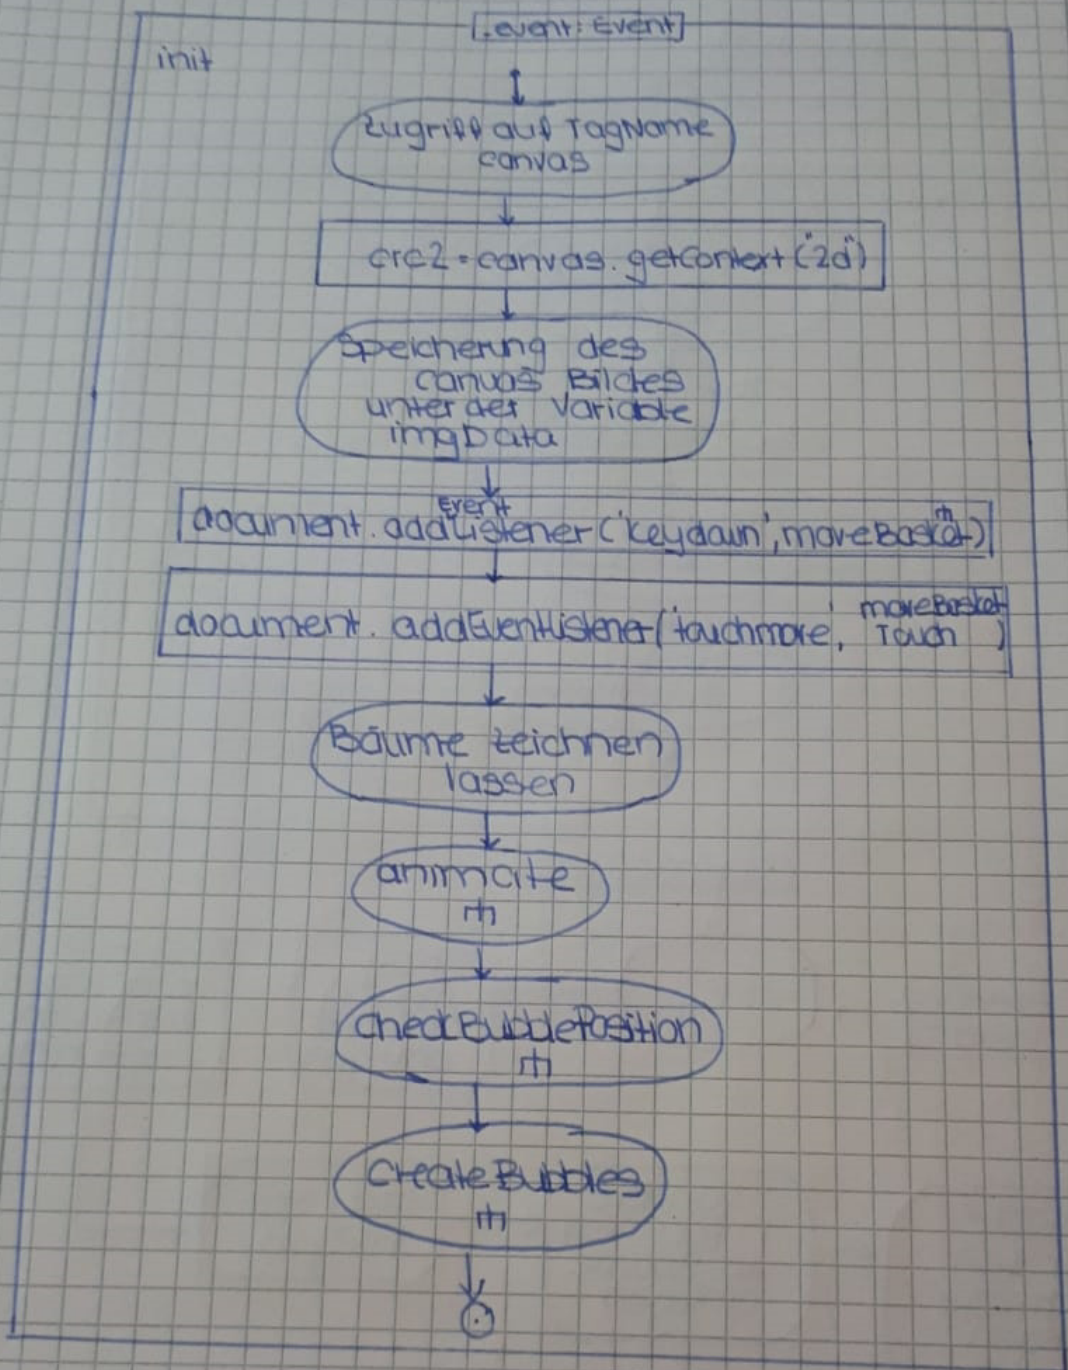 _event: Event
init
Zugriff auf TagName
canvas
crc2 = canvas.getContext("2d")
Speicherung des
canvas Bildes
unter der Variable
imgData
Event
document.addListener('keydown', moveBasket)
document.addEventListener('touchmove', moveBasket
Touch )
Bäume zeichnen
lassen
animate
checkBubblePosition
createBubbles